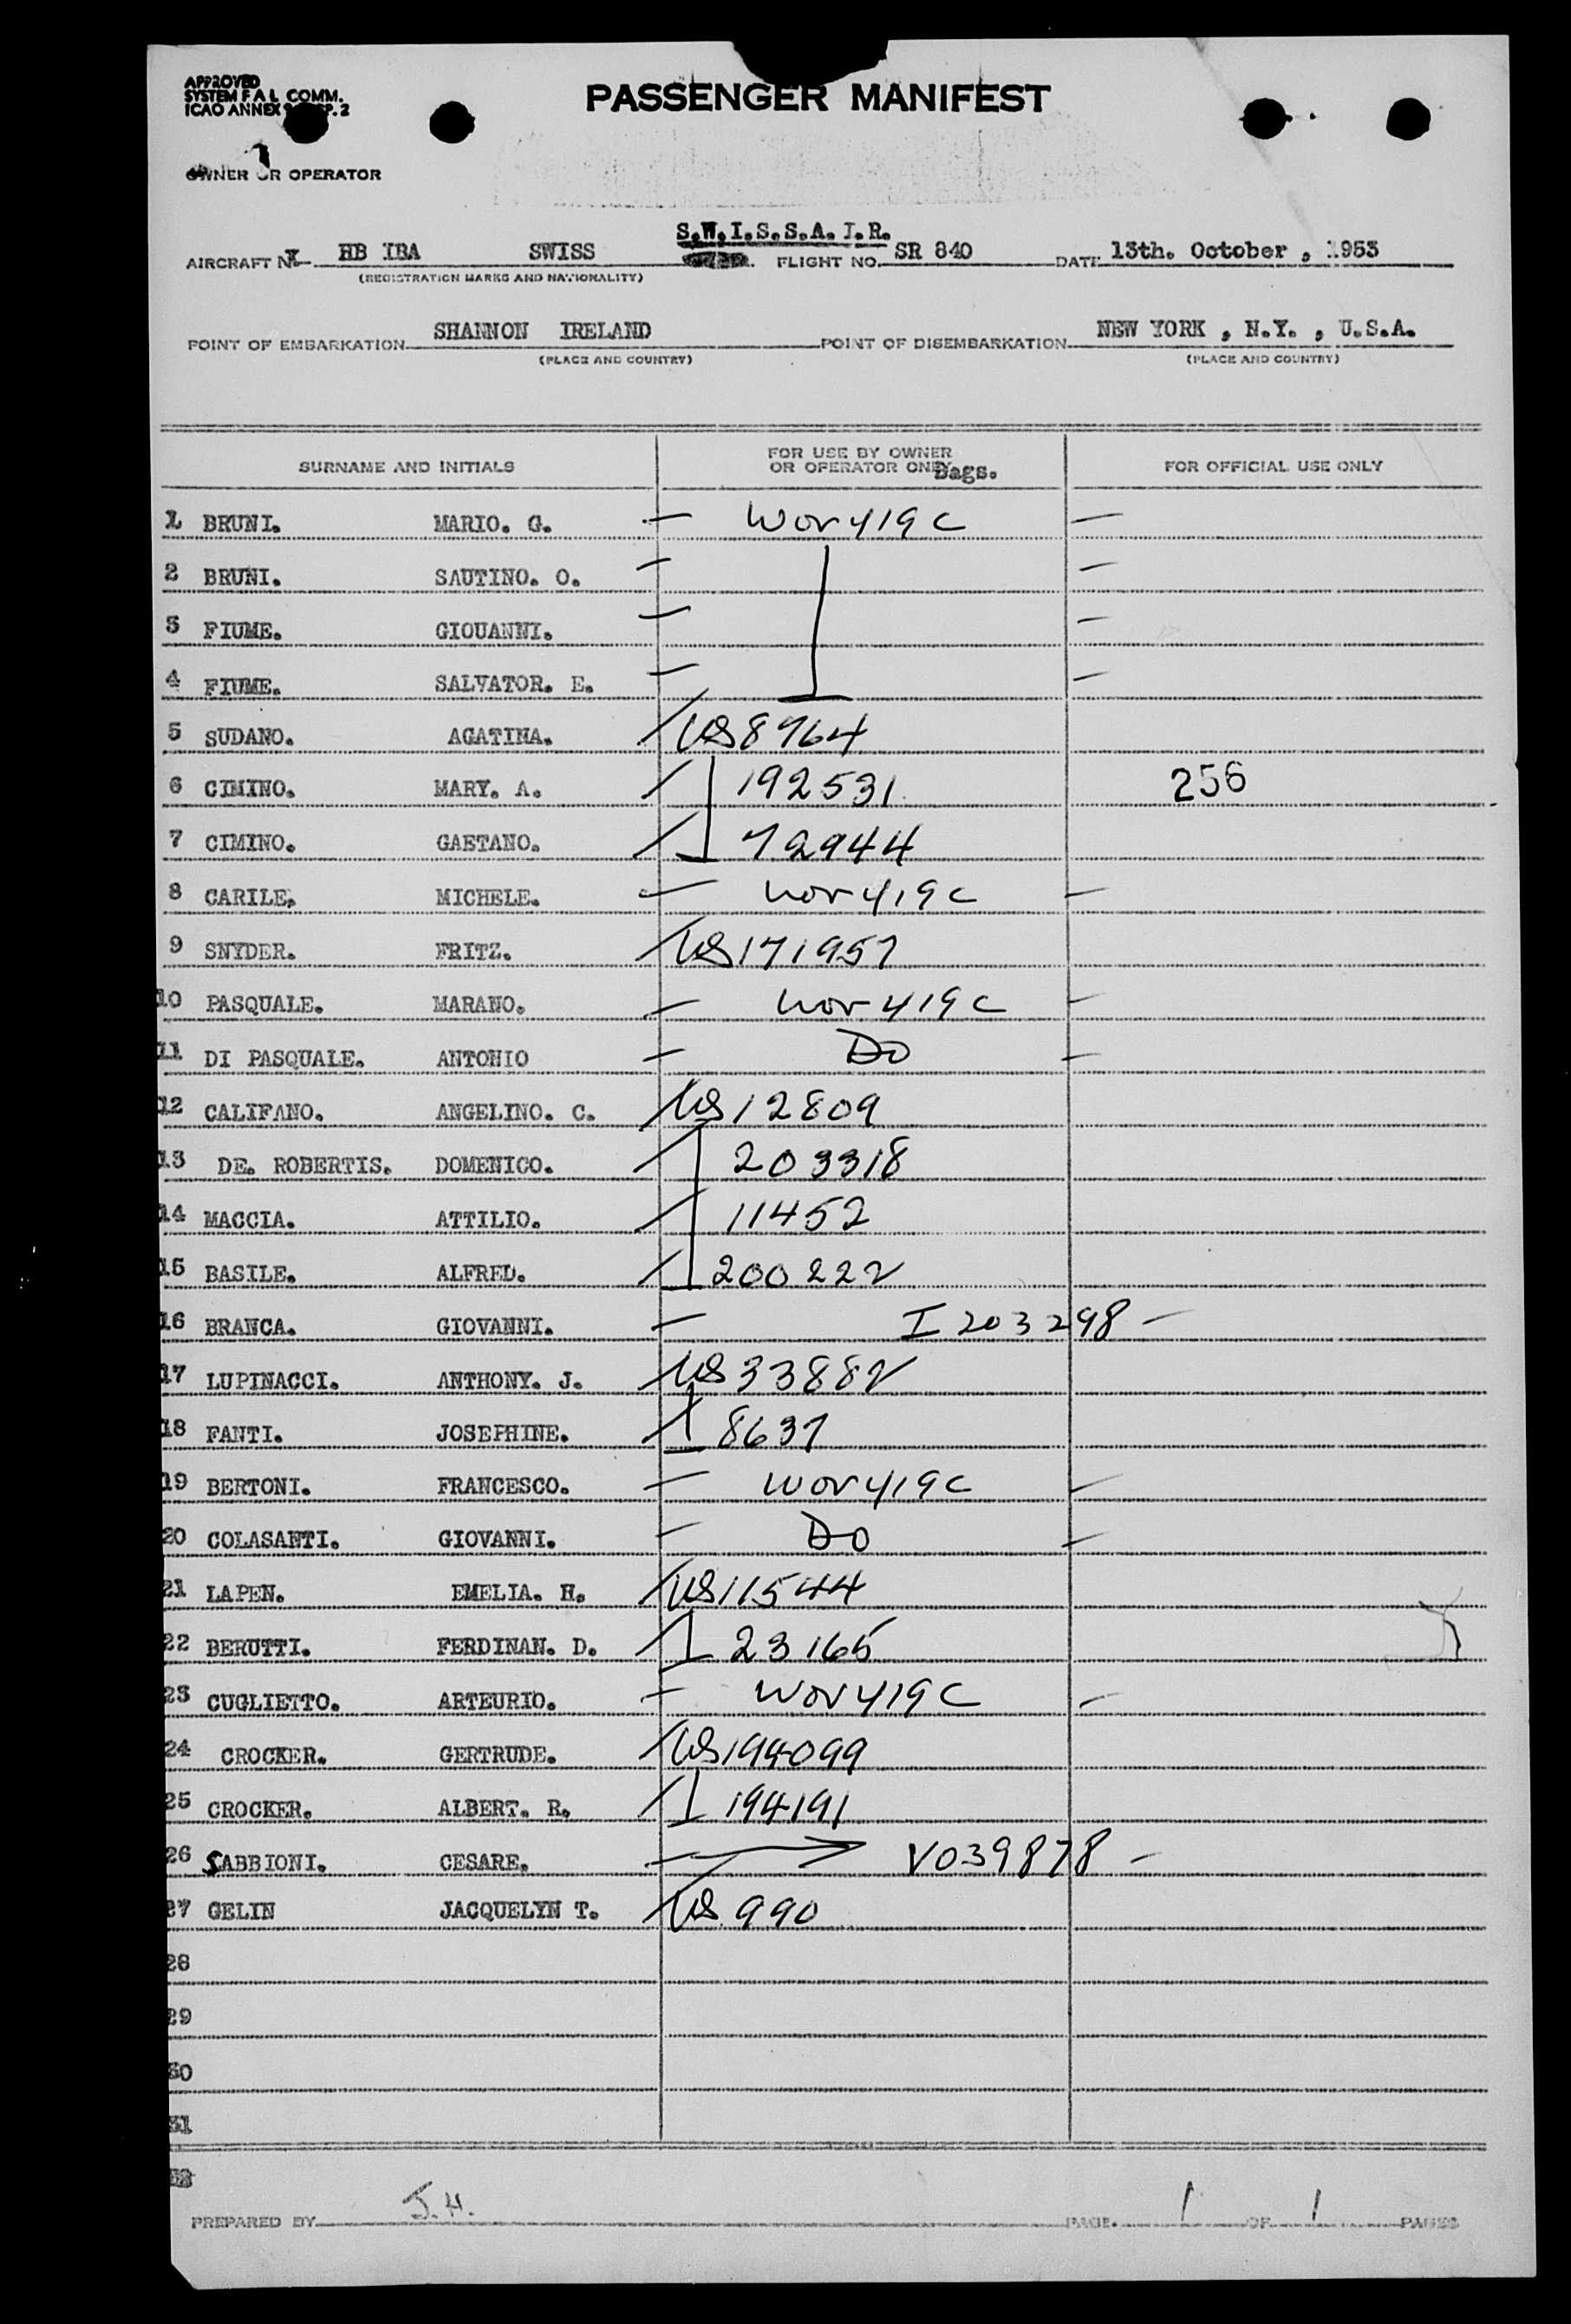 APPROVED
SYSTEM F A L COMM.
ICAO ANNEX 9 P. 2
PASSENGER MANIFEST
OWNER OR OPERATOR
S.W.I.S.S.A.I.R.
AIRCRAFT HB IBA SWISS FLIGHT NO. SR 840 DATE 13th. October , 1953
(REGISTRATION MARKS AND NATIONALITY)
POINT OF EMBARKATION SHANNON IRELAND POINT OF DISEMBARKATION NEW YORK , N.Y. , U.S.A.
(PLACE AND COUNTRY) (PLACE AND COUNTRY)
SURNAME AND INITIALS FOR USE BY OWNER OR OPERATOR ONLY Bags. FOR OFFICIAL USE ONLY
1 BRUNI. MARIO. G. — Wor 419 C —
2 BRUNI. SAUTINO. O. — —
3 FIUME. GIOUANNI. — —
4 FIUME. SALVATOR. E. — —
5 SUDANO. AGATINA. / US 8764
6 CIMINO. MARY. A. / 192531 256
7 CIMINO. GAETANO. / 72944
8 CARILE. MICHELE. — Wor 419 C —
9 SNYDER. FRITZ. / US 171957
10 PASQUALE. MARANO. — Wor 419 C —
11 DI PASQUALE. ANTONIO — DO —
12 CALIFANO. ANGELINO. C. / US 12809
13 DE. ROBERTIS. DOMENICO. / 203318
14 MACCIA. ATTILIO. / 11452
15 BASILE. ALFRED. / 200222
16 BRANCA. GIOVANNI. — I 203298 —
17 LUPINACCI. ANTHONY. J. / US 33882
18 FANTI. JOSEPHINE. / 8637
19 BERTONI. FRANCESCO. — Wor 419 C —
20 COLASANTI. GIOVANNI. — DO —
21 LAPEN. EMELIA. H. / US 11544
22 BERUTTI. FERDINAN. D. / 23165
23 CUGLIETTO. ARTEURIO. — Wor 419 C —
24 CROCKER. GERTRUDE. / US 194099
25 CROCKER. ALBERT. R. / 194191
26 SABBIONI. CESARE. — → V039878 —
27 GELIN JACQUELYN T. / US 990
28
29
30
31
PREPARED BY J.H. PAGE. 1 OF 1 PAGES